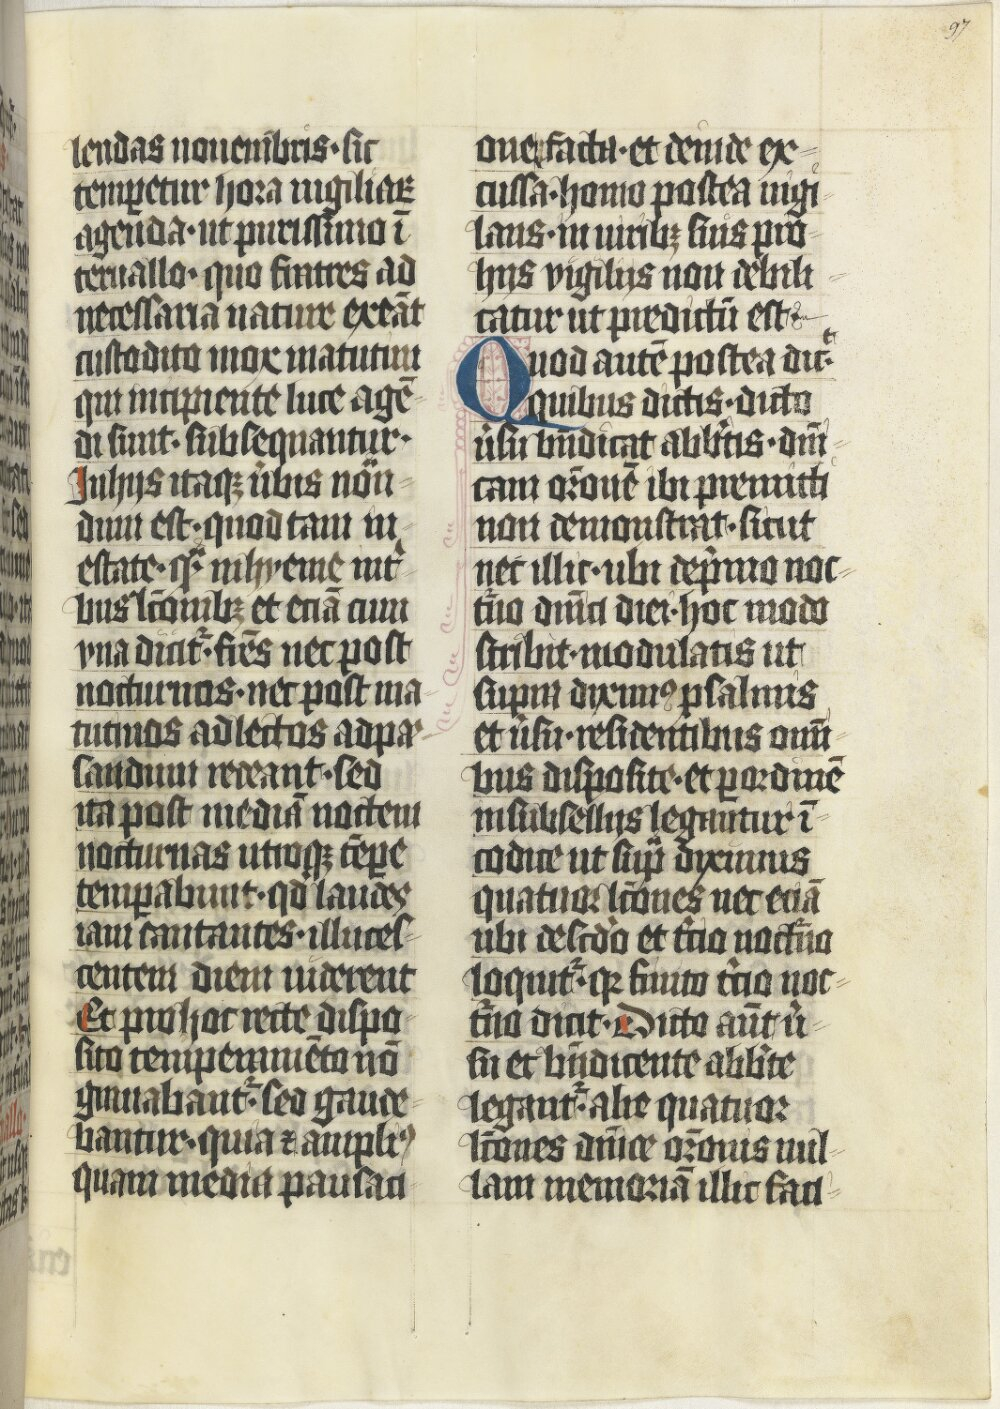 97
lendas nouembris·sic
temperetur hora uigiliar
agenda·ut purissimo ī
teruallo·quo fratres ad
necessaria nature exeāt
custodito mox matutini
qui incipiente luce agē-
di sunt·subsequantur·
Inhijs itaqꝫ ūbis non-
dum est·quod tam in-
estate·qͣ in hyeme
bus lc̄onibꝫ et eciā cum
vna dicit᷑·fr̄es nec post
nocturnos·nec post ma-
tutinos ad lectos ad pa-
sandum redeant·sed
ita post mediā noctem
nocturnas utrosqꝫ tēpe
temꝑabunt·qd laudes
iam cantantes·illuces-
centem diem uiderent
Et pro hoc recte dispo-
sito temperamēto nō
grauabant᷑·sed gaude-
bantur·quia ⁊ ampliꝰ
quam media pausaci-
one facta·et deinde ex-
cussa·homo postea uigi-
lans·in uiribꝫ suis pro-
hijs vigilijs non debili-
catur ut predictū est·
Quod autē postea dic̄t·
quibus dictis·dicto
ūsu bn̄dicat abb̄tis·dn̄i-
cam or̄onē ibi premitti
non demonstrat·sicut
nec illic·ubi de pͥmo noc-
t̄no dn̄ici diei·hoc modo
scribit·modulatis ut
supra diximꝰ psalmis
et ūsu·residentibus omī-
bus disposite·et ꝑ ordinē
in subsellijs legantur ī-
codice ut supͣ dyximus
quatuor lc̄ones nec eciā
ubi de scd̄o et t̄cio noct̄no
loquit᷑·qꝛ finito t̄cio noc-
t̄no dicit·Dicto aūt ū-
su et bn̄dicente abb̄te
legant᷑·alie quatuor
lc̄ones dn̄ice or̄onis nul-
lam memoriā illic faci-